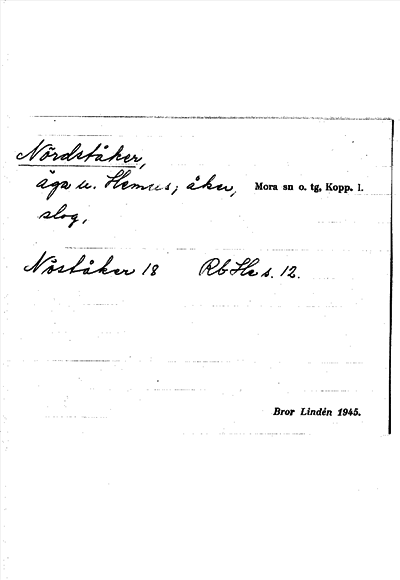 Nördståker,
äga u. Hemus; åker, Mora sn o. tg, Kopp. l.
slog,
Nöståker 18 Rb He s. 12.
Bror Lindén 1945.